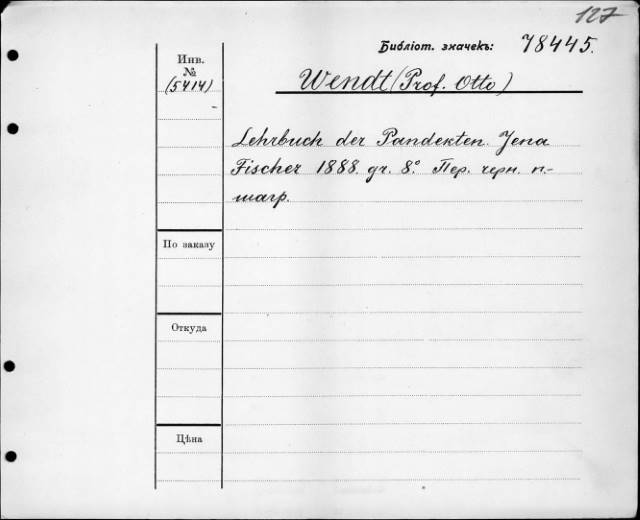 127
Библіот. значекъ: 78445.
Инв.
№
(5414)
Wendt (Prof. Otto)
Lehrbuch der Pandekten. Jena
Fischer 1888. gr. 8° Пер. черн. п.-
шагр.
По заказу
Откуда
Цѣна